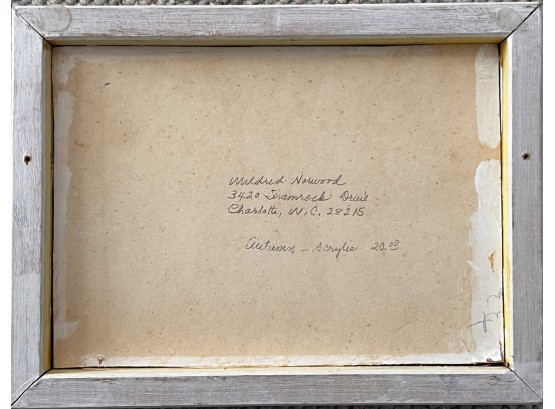 Mildred Norwood
3420 Shamrock Drive
Charlotte, N.C. 28215
Autumn - Acrylic 20.00